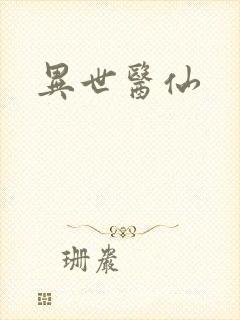 異世醫仙
珊巖